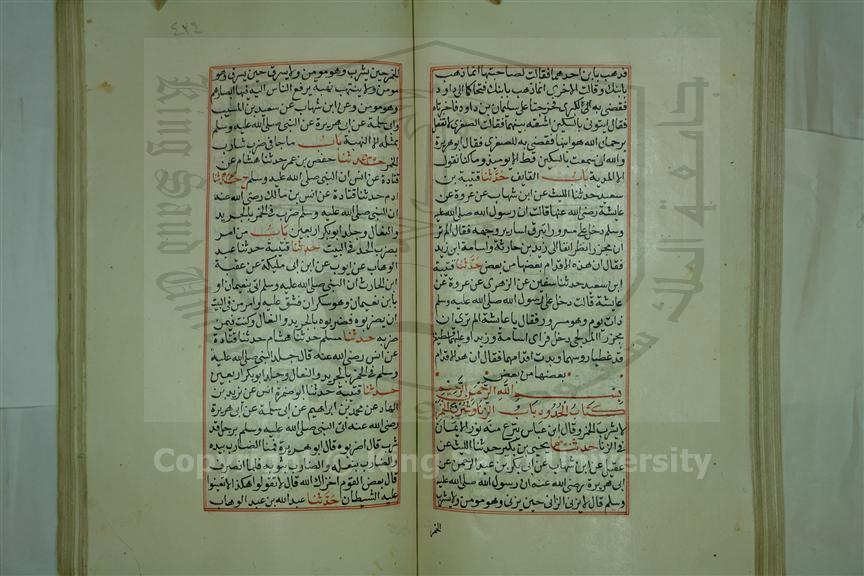 ٤٢٤
فذهب بابن احدهما فقالت لصاحبتها انما ذهب
بابنك وقالت الاخرى انما ذهب بابنك فتحاكما الى داود
فقضى به للكبرى فخرجتا على سليمان بن داود فاخبرتاه
فقال ايتونى بالسكين اشقه بينهما فقالت الصغرى لا تفعل
يرحمك الله هو ابنها فقضى به للصغرى قال ابو هريرة
والله ان سمعت بالسكين قط الا يومئذ وما كنا نقول
الا المدية باب القايف حدثنا قتيبة بن
سعيد حدثنا الليث عن ابن شهاب عن عروة عن
عايشة رضى الله عنها قالت ان رسول الله صلى الله عليه
وسلم دخل على مسرورا تبرق اسارير وجهه فقال الم ترى
ان مجززا نظر انفا الى زيد بن حارثة واسامة ابن زيد
فقال ان هذه الاقدام بعضها من بعض حدثنا قتيبة
ابن سعيد حدثنا سفين عن الزهرى عن عروة عن
عايشة قالت دخل على رسول الله صلى الله عليه وسلم
ذات يوم وهو مسرور فقال يا عايشة الم ترى ان
مجززا المدلجى دخل فراى اسامة وزيدا وعليهما قطيفة
قد غطيا روسهما وبدت اقدامهما فقال ان هذه الاقدام
بعضها من بعض
بسم الله الرحمن الرحيم
كتاب الحدود باب الزنا وشرب الخمر
لا يشرب الخمر وقال ابن عباس ينزع منه نور الايمان
فى الزنا حدثنى يحيى بن بكير حدثنا الليث عن
عقيل عن ابن شهاب عن ابى بكر بن عبد الرحمن عن
ابى هريرة رضى الله عنه ان رسول الله صلى الله عليه
وسلم قال لا يزنى الزانى حين يزنى وهو مومن ولا يشرب
الخمر
الخمر حين يشرب وهو مومن ولا يسرق حين يسرق وهو
مومن ولا ينتهب نهبة يرفع الناس اليه فيها ابصارهم
وهو مومن وعن ابن شهاب عن سعيد بن المسيب
وابى سلمة عن ابى هريرة عن النبى صلى الله عليه وسلم
بمثله الا النهبة باب ما جا فى ضرب شارب
الخمر حدثنا حفص بن عمر حدثنا هشام عن
قتادة عن انس ان النبى صلى الله عليه وسلم ح حدثنا
ادم حدثنا قتادة عن انس بن مالك رضى الله عنه
ان النبى صلى الله عليه وسلم ضرب فى الخمر بالجريد
والنعال وجلد ابو بكر اربعين باب من امر
بضرب الحد فى البيت حدثنا قتيبة حدثنا عبد
الوهاب عن ايوب عن ابن ابى مليكة عن عقبة
ابن الحارث ان النبى صلى الله عليه وسلم اتى بنعيمان او
بابن نعيمان وهو سكران فشق عليه وامر من فى البيت
ان يضربوه فضربوه بالجريد والنعال وكنت فيمن
ضربه حدثنا مسلم حدثنا هشام حدثنا قتادة
عن انس رضى الله عنه قال جلد النبى صلى الله عليه
وسلم فى الخمر بالجريد والنعال وجلد ابو بكر اربعين
حدثنا قتيبة حدثنا ابو ضمرة انس عن يزيد بن
الهاد عن محمد بن ابراهيم عن ابى سلمة عن ابى هريرة
رضى الله عنه اتى النبى صلى الله عليه وسلم برجل قد
شرب قال اضربوه قال ابو هريرة فمنا الضارب بيده
والضارب بنعله والضارب بثوبه فلما انصرف
قال بعض القوم اخزاك الله قال لا تقولوا هكذا لا تعينوا
عليه الشيطان حدثنا عبد الله بن عبد الوهاب
جامعة الملك
King Saud Un
Copyright © King Saud University